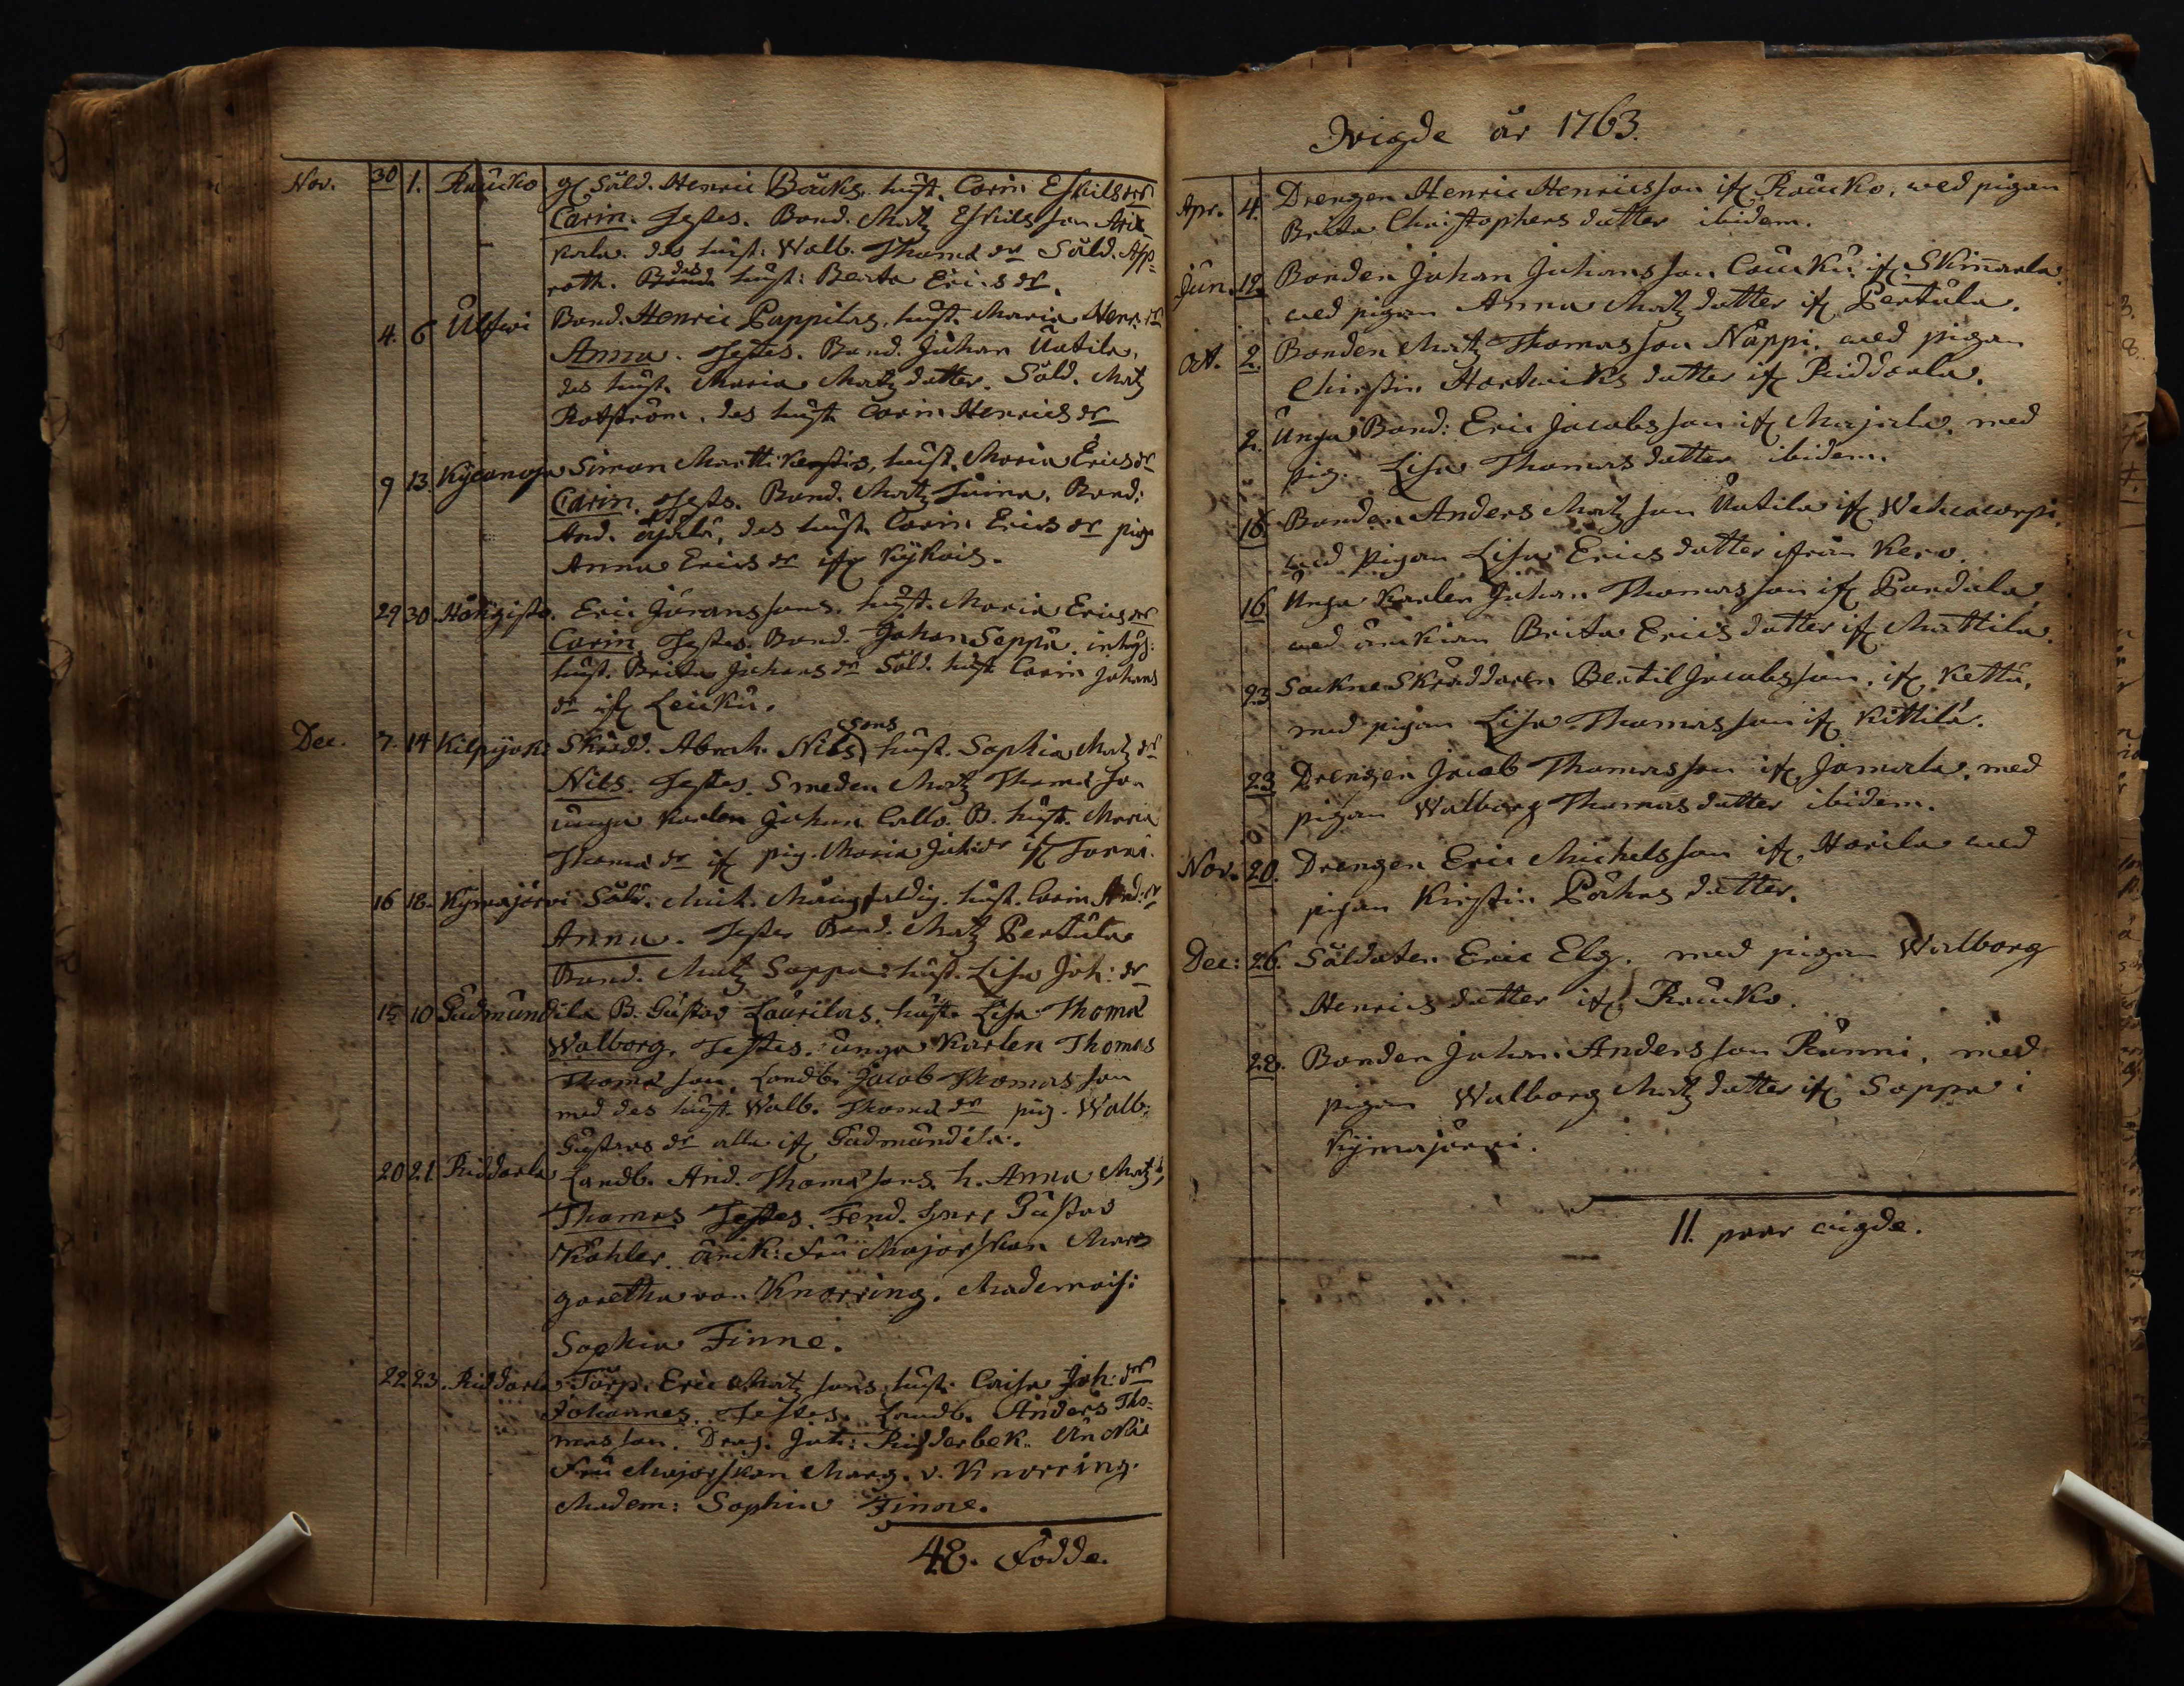 Nov. 30 1. Raucko gl. Såld. Henric Båcks. hust. Carin Eskilsdr
Carin. Testes. Bond. Matz Eskilsson
karla. des hust: Walb. Thomæ dr Såld. Asp=
roth. des hust: Berta Erics dr.
4. 6 Ulfwi Bond. Henric Pappilas. hust. Maria Henr: dr
Anna. Testes. Bond. Juhan Uotila.
des hust. Maria Matz dotter. Såld. Matz
Rotström. des hust. Carin Henrics dr
9 13. Simon Martti hust. Maria Erics dr
Carin. Testes. Bond. Matz Bond:
And. des hust. Carin Erics dr pig.
Anna Erics dr ifr. Kykois.
29 30 Eric Göranssons. hust. Maria Erics dr
Carin Testes. Bond. Johan Seppä. inhys:
hust. Brita Juhans dr Såld. hust Carin Johans
dr ifr. Leuku.
Dec. 7. 14 Kilpijoki Skrädd. Abrah. Nils sons hust. Sophia Matz dr
Nils. Testes. Smeden Matz Thomæ son
unga karlen Juhan Callo. B. hust. Maria
Thomæ dr ifr. pig. Maria Juh: dr ifr Torri.
16 18. Kymajärvi Såld. Mich. Mångfaldig. hust. Carin And: dr
Anna. Testes Bond. Matz Pertula
Bond. Matz Soppa: hust. Lisa Joh: dr
15 10 Gudmundila B. Gustav Laurilas. hust. Lisa Thomæ
Walborg. Testes. unga Karlen Thomas
Thomæ son. Landb. Jacob Thomas son
med des hust. Walb. Thomæ dr pig. Walb:
Gustavs dr alla ifr. Gudmundila.
20 21 Riddarla Landb. And. Thomæ sons. h. Anna Matz
Thomas Testes. Fend. herr Gustav
Köhler. änck: Fru Majorskan Mar=
garetha von Knorring. Mademois:
Sophia Finne.
22 23. Riddarla Torp. Eric Matz sons hust: Caisa Joh: dr
Johannes. Testes. Landb. Anders Tho=
mas son. Drag: Joh: Ridderbek. Änckie
Fru Majorskan Marg. v. Knorring.
Madem: Sophia Finne.
48. Födde.
Wigde år 1763.
Apr. 4. Drengen Henric Henricsson ifr. Raucko, med pigan
Brita Christophers dotter ibidem.
Jun. 19. Bonden Johan Juhans son Coucku ifr. Skinnarla
med pigan Anna Matz dotter ifr Pertula.
Oct. 2. Bonden Matz Thomas son Nåppi, med pigan
Christin Hartwicks dotter ifr Riddarla.
2. Unga Bond: Eric Jacobs son ifr Majala, med
pig. Lisa Thomas dotter ibidem.
16. Bonden Anders Matz son Uotila ifr
med pigan Lisa Erics dotter ifrån Kero.
16. Unga Karlen Johan Thomas son ifr Pandala
med änckian Brita Erics dotter ifr Mattila.
23 Sockne Skräddaren Bertil Jacobsson. ifr. Kettu,
med pigan Lisa Thomas son ifr Kittilä.
23. Drengen Jacob Thomasson ifr. Jamala, med
pigan Walborg Thomas dotter ibidem.
Nov. 20. Drengen Eric Michelsson ifr. Harila med
pigan Kirstin Påhls dotter.
Dec: 26. Såldaten Eric Elg. med pigan Walborg
Henrics dotter ifr Raucko.
28. Bonden Johan Andersson Ränni, med
pigan Walborg Matz dotter ifr Soppa i
Kymajärvi.
11. paar wigde.